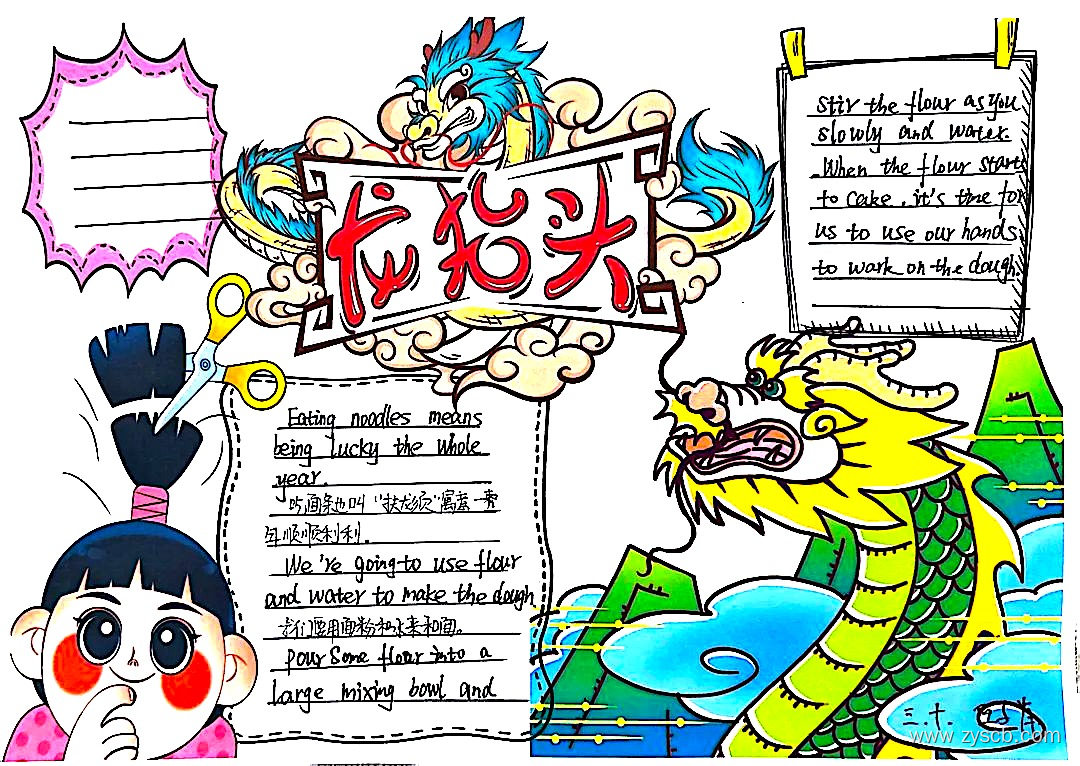 龙抬头
Stir the flour as you
slowly and water.
When the flour starts
to cake, it's time for
us to use our hands
to work on the dough.
Eating noodles means
being lucky the whole
year.
吃面条也叫"扶龙须"寓意一
年顺顺利利.
We're going to use flour
and water to make the dough
我们要用面粉和水来和面。
pour some flour into a
large mixing bowl and
三.十.
www.zyscb.com